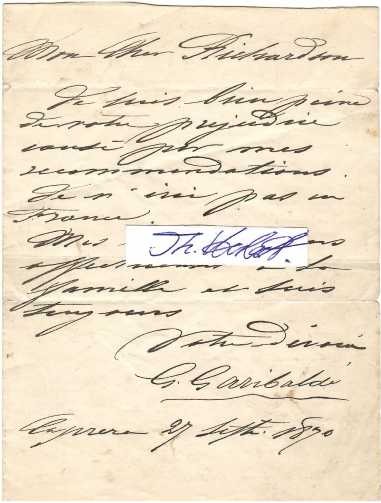 Mon Cher Richardson
Je suis bien peiné
de votre prejudice
causé par mes
recommendations.
Je n'irai pas en
France
Mes
à la
famille et suis
toujours
Votre dévoué
G. Garibaldi
Caprera 27 Sept. 1870